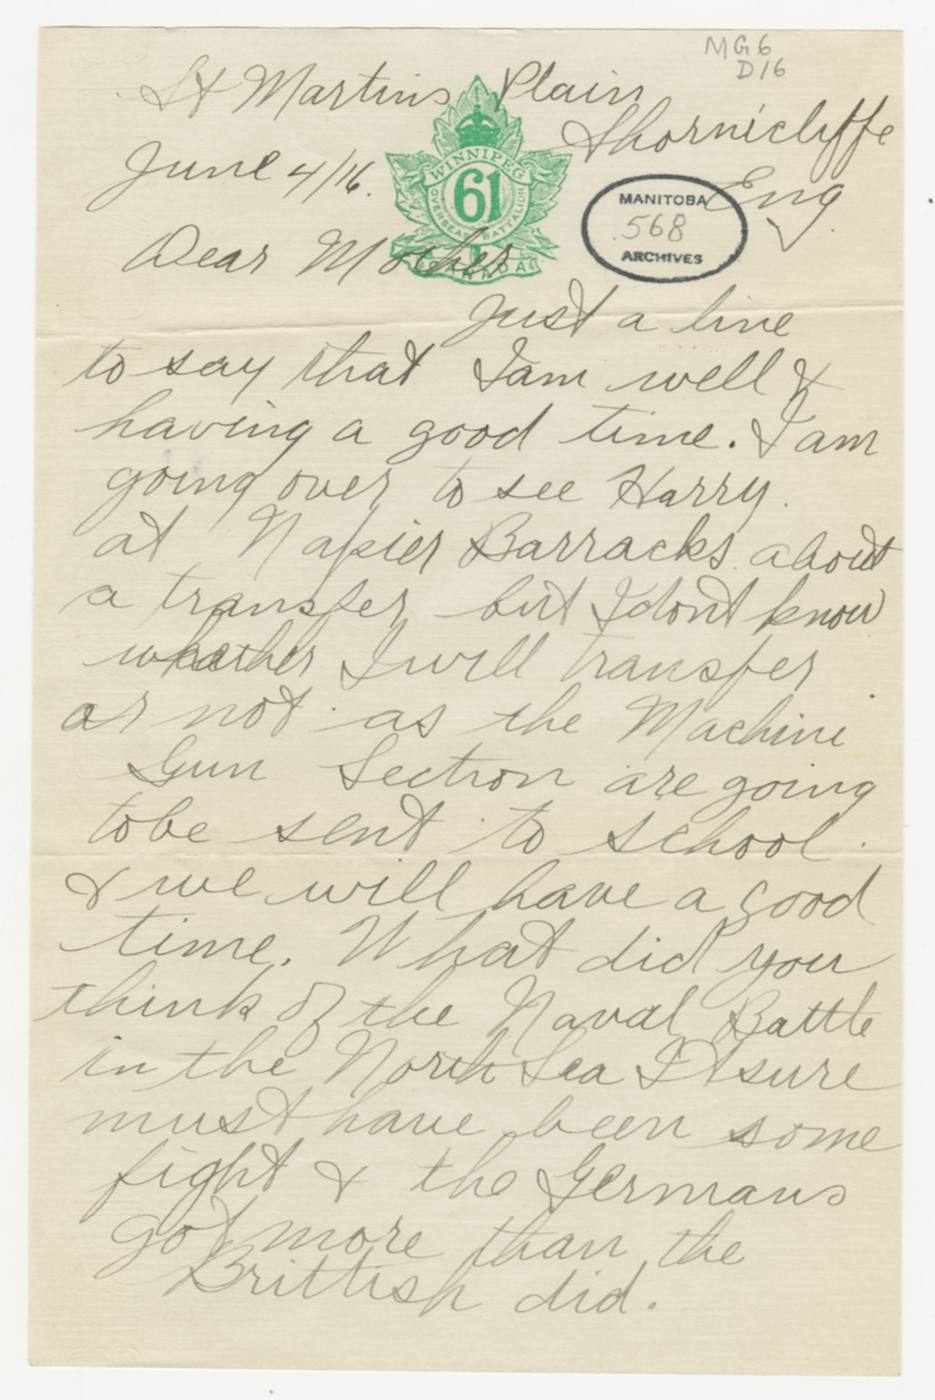 MG6
D16
St Martins Plain
Shornicliffe
Eng.
June 4/16.
WINNIPEG
61
OVERSEAS BATTALION
CANADA
MANITOBA
568
ARCHIVES
Dear Mother
Just a line
to say that I am well &
having a good time. I am
going over to see Harry
at Napier Barracks about
a transfer but I dont know
wheather I will transfer
or not as the Machine
Gun Section are going
to be sent to school.
& we will have a good
time. What did you
think of the Naval Battle
in the North Sea It sure
must have been some
fight & the Germans
got more than the
Brittish did.